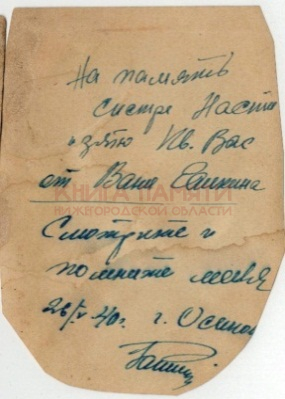 На память
сестре Насте
и зятю Ив. Вас
от Вани Саикина
КНИГА ПАМЯТИ
НИЖЕГОРОДСКОЙ ОБЛАСТИ
Смотрите и
помните меня
26/V 40г. г. Осипов